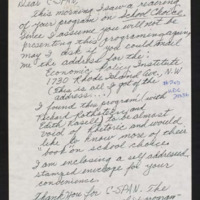 Dear C-SPAN,
This morning I saw a rerunning
of your program on School Choice
Since I assume you will not be
presenting this programming again
I think if you could send
me the address for the
Economic Policy Institute
1730 Rhode Island Ave., N.W.
(This is all I got of the
address....)
I found this program with
Richard Rothstein and
Edith Rasell to be almost
void of rhetoric and would
like to know more of their
book on school choice
I am enclosing a self addressed
stamped envelope for your
convenience.
Thank you for C-SPAN. The
program